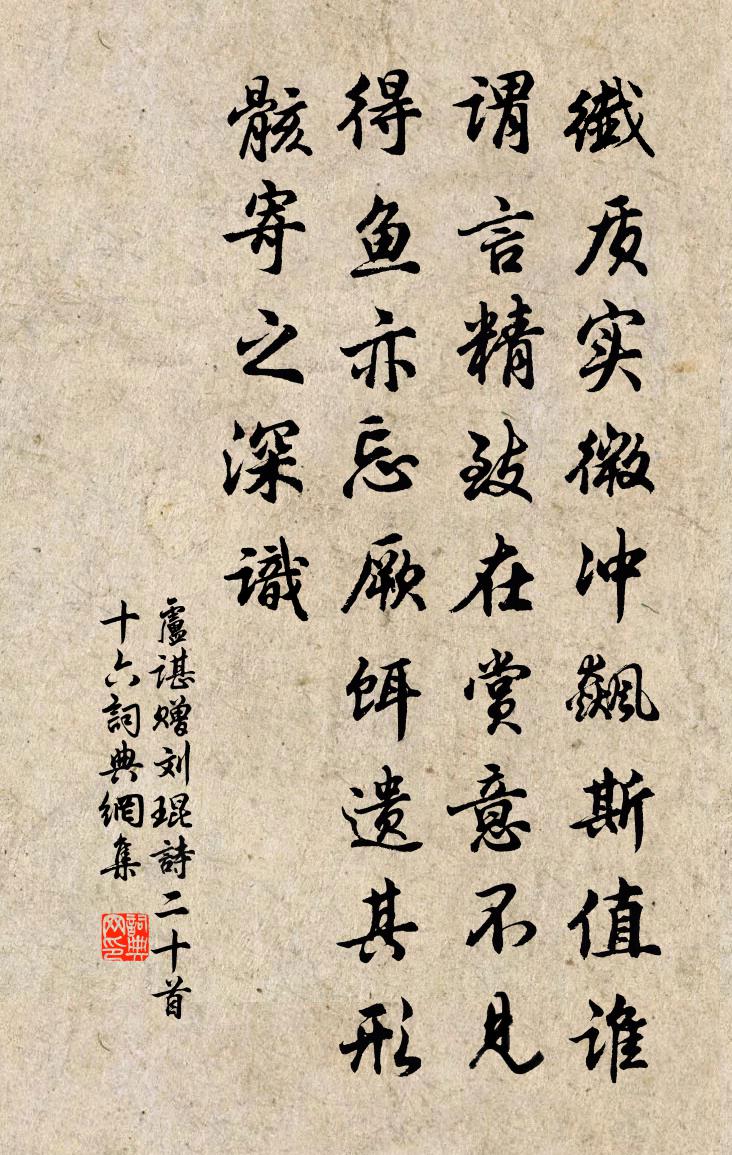 纖质实微冲飆斯值谁
谓言精致在赏意不见
得鱼亦忘厥饵遗其形
骸寄之深識
盧諶赠刘琨詩二十首
十六詞典網集
詞典网印